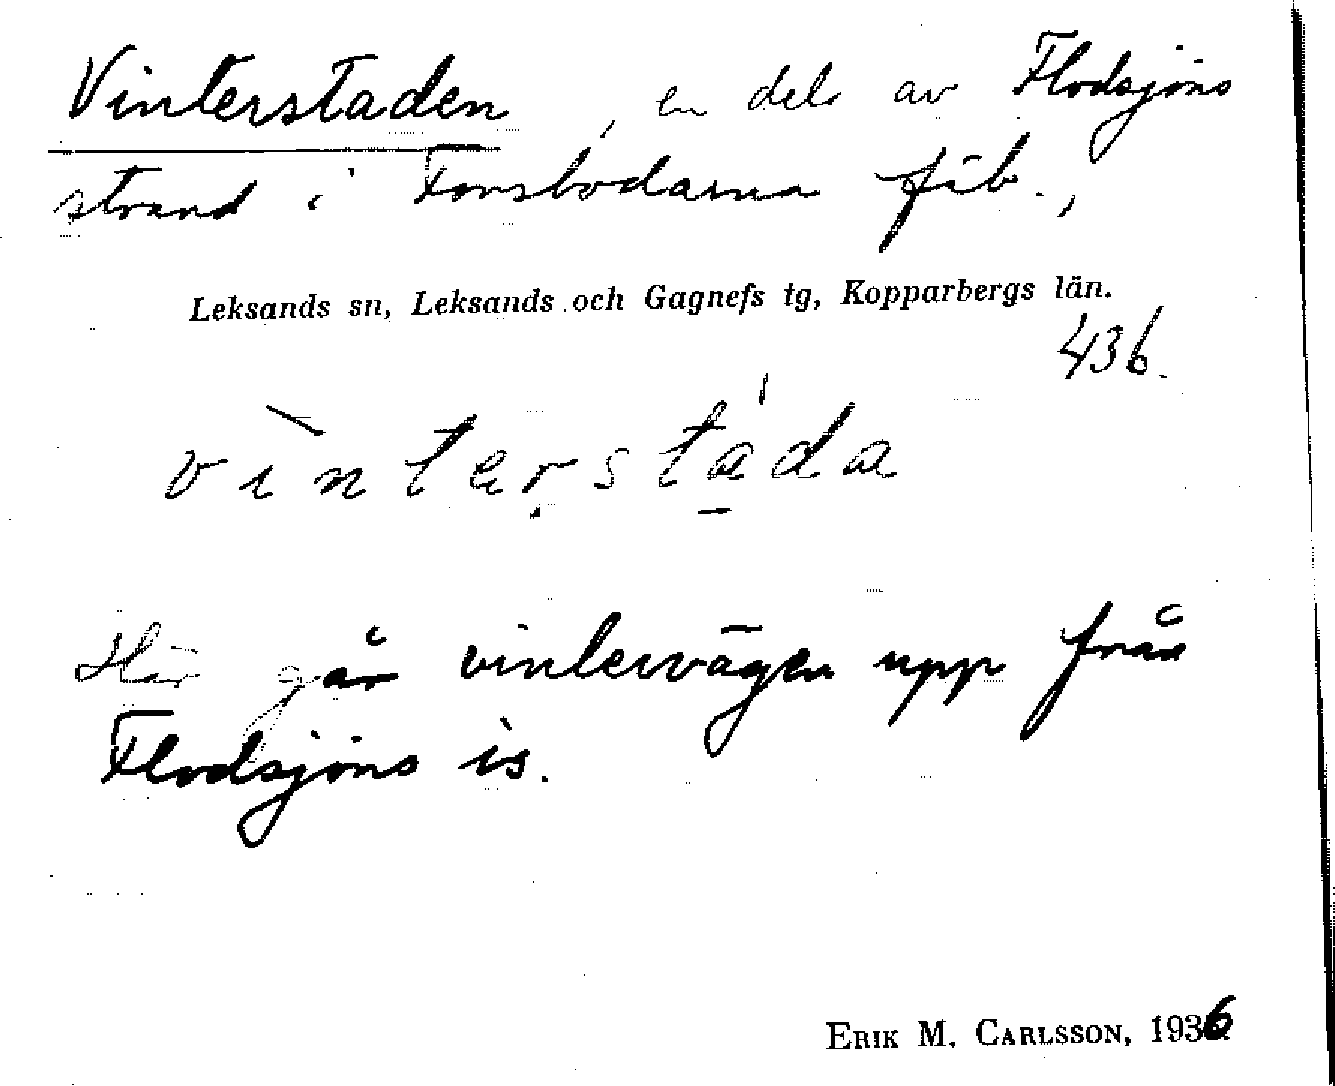 Vinterstaden, en del av Flodsjöns
strand i Forsbodarna fäb.,
Leksands sn, Leksands och Gagnefs tg, Kopparbergs län.
436.
vìnterstáda
Här går vintervägen upp från
Flodsjöns is.
ERIK M. CARLSSON, 1936